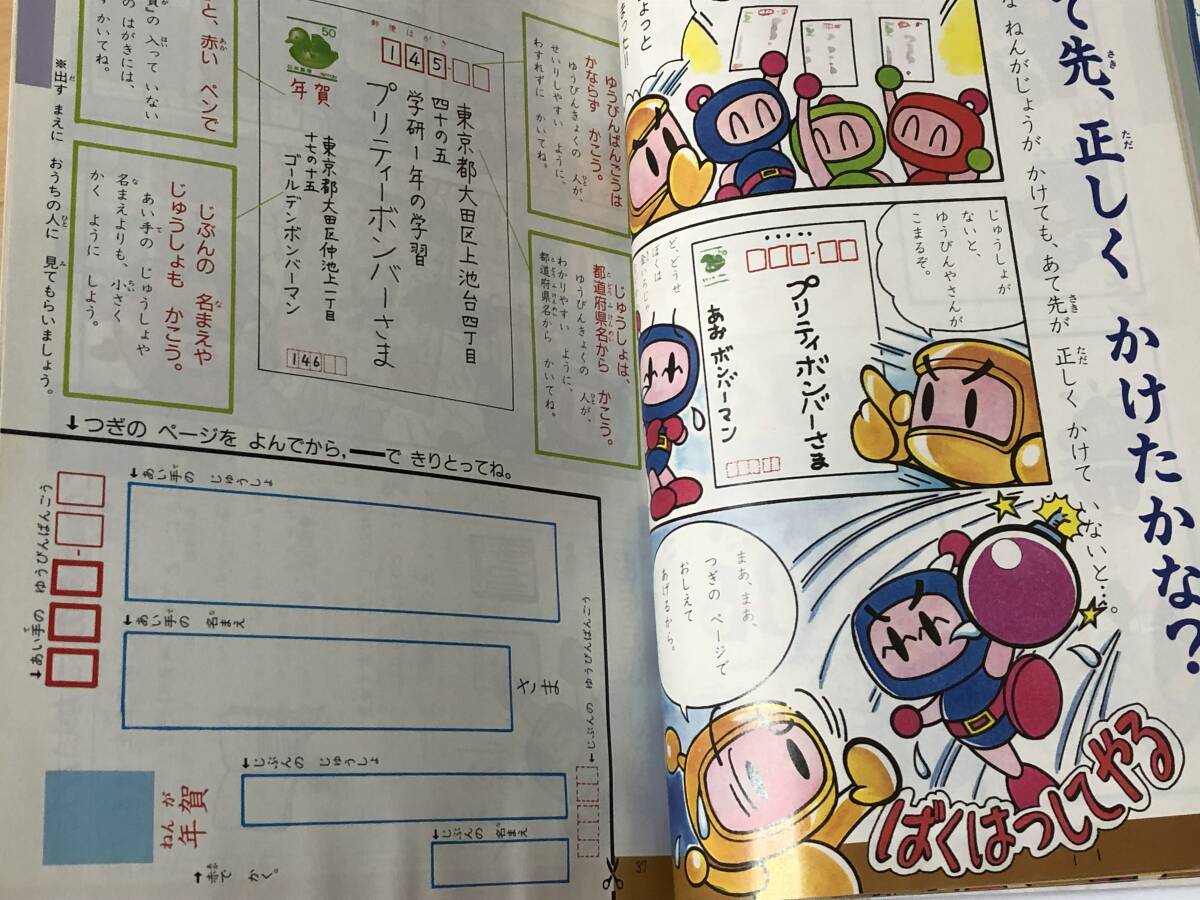 て先、正しく かけたかな?
さき
ただ
なねんがじょうが かけても、あて先が 正しく かけて いないと…。
さき
ただ
ょっと
じゅうしょが
ないと、
ゆうびんやさんが
こまるぞ。
プリティボンバーさま
あおボンバーマン
ど、どうせ
ぼくは
まあ、まあ、
つぎの ページで
おしえて
あげるから。
ばくはつしてやる
ゆうびんばんごうは
かならず かこう。
ゆうびんきょくの 人が、
せいりしやすい ように、
わすれずに かいてね。
じゅうしょは、
都道府県名から かこう。
とどうふけんめい
ゆうびんきょくの 人が、
わかりやすい ように、
都道府県名から かいてね。
とどうふけんめい
郵便はがき
145
50
年賀
東京都大田区上池台四丁目
四十の五
学研一年の学習
プリティーボンバーさま
東京都大田区仲池上一丁目
十七の十五
ゴールデンボンバーマン
146
と、赤い ペンで
あか
賀」の 入って いない
はい
の はがきには、
すかいてね。
じぶんの 名まえや
じゅうしょも かこう。
あい手の じゅうしょや
名まえよりも、小さく
かく ように しよう。
※出す まえに おうちの人に 見てもらいましょう。
↓つぎの ページを よんでから、━━で きりとってね。
↓あい手の ゆうびんばんごう
↓あい手の じゅうしょ
↓あい手の 名まえ
さま
↓じぶんの ゆうびんばんごう
↓じぶんの じゅうしょ
↓じぶんの 名まえ
年賀
ねんが
→赤で かく。
37